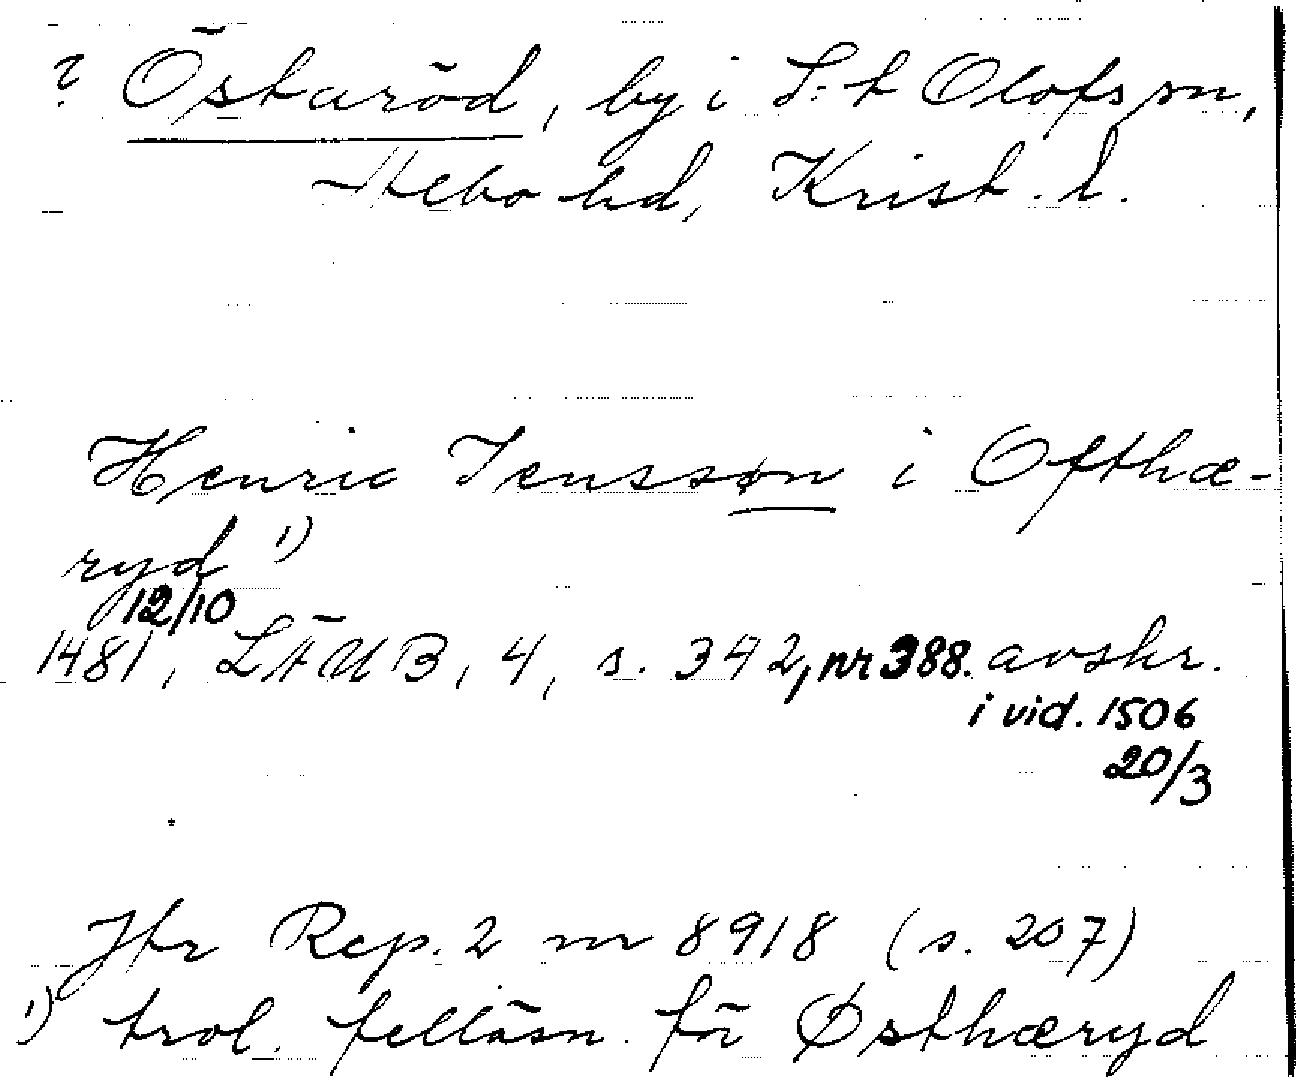 ? Östaröd, by i S:t Olofs sn,
Albo hd, Krist. l.
Henric Jenssøn i Ofthæ-
ryd 1)
12/10
1481, LÄUB, 4, s. 342, nr 388. avskr.
i vid. 1506
20/3
Jfr Rep. 2 nr 8918 (s. 207)
1) trol. felläsn. för Østhæryd